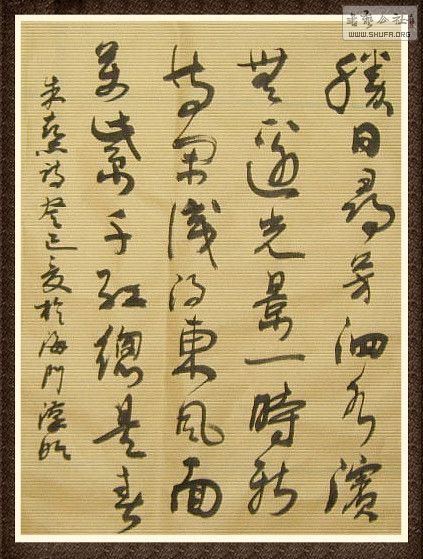 書藝公社
WWW.SHUFA.ORG
勝日尋芳泗水濱
無邊光景一時新
等閑識得東風面
萬紫千紅總是春
朱熹詩癸巳夏於海門